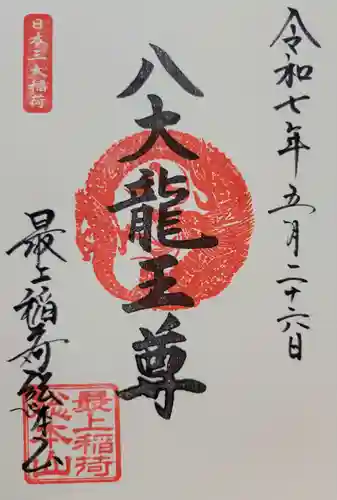 令和七年五月二十六日
日本三大稲荷
八大龍王尊
最上稲荷総本山
最上稲荷
総本山